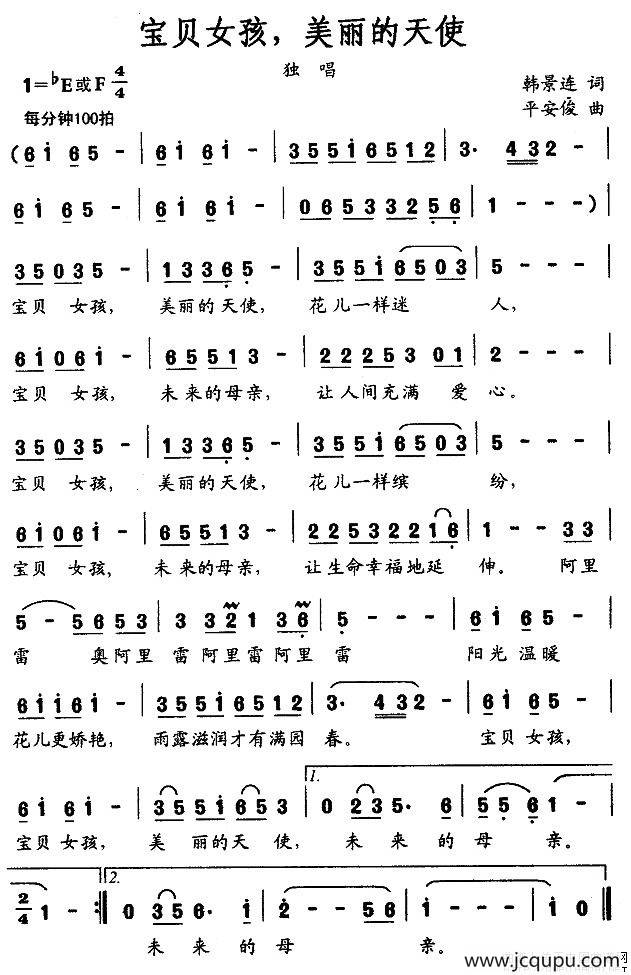 宝贝女孩，美丽的天使
独 唱
1=♭E或F 4/4
韩景连 词
每分钟100拍
平安俊 曲
( 6 i 6 5 - | 6 i 6 i - | 3 5 5 i 6 5 1 2 | 3· 4 3 2 - |
6 i 6 5 - | 6 i 6 i - | 0 6 5 3 3 2 5 6 | 1 - - ) |
3 5 0 3 5 - | 1 3 3 6 5 - | 3 5 5 i 6 5 0 3 | 5 - - - |
宝贝 女孩， 美丽的天使， 花儿一样迷 人，
6 i 0 6 i - | 6 5 5 1 3 - | 2 2 2 5 3 0 1 | 2 - - - |
宝贝 女孩， 未来的母亲， 让人间充满 爱 心。
3 5 0 3 5 - | 1 3 3 6 5 - | 3 5 5 i 6 5 0 3 | 5 - - - |
宝贝 女孩， 美丽的天使， 花儿一样缤 纷，
6 i 0 6 i - | 6 5 5 1 3 - | 2 2 5 3 2 2 1 6 | 1 - - 3 3 |
宝贝 女孩， 未来的母亲， 让生命幸福地延 伸。 阿里
5 - 5 6 5 3 | 3 3 2 1 3 6 | 5 - - - | 6 i 6 5 - |
雷 奥阿里 雷阿里雷阿里 雷 阳光 温暖
6 i i 6 i - | 3 5 5 i 6 5 1 2 | 3· 4 3 2 - | 6 i 6 5 - |
花儿更娇艳， 雨露滋润才有满园 春。 宝贝 女孩，
1.
6 i 6 i - | 3 5 5 i 6 5 3 | 0 2 3 5· 6 | 5 5 6 1 - |
宝贝 女孩， 美 丽的天 使， 未 来 的 母 亲。
2.
2/4 1 - :| 0 3 5 6· i | 2 - - 5 6 | i - - - | i - i 0 ‖
未 来 的 母 亲。
www.jcqupu.com